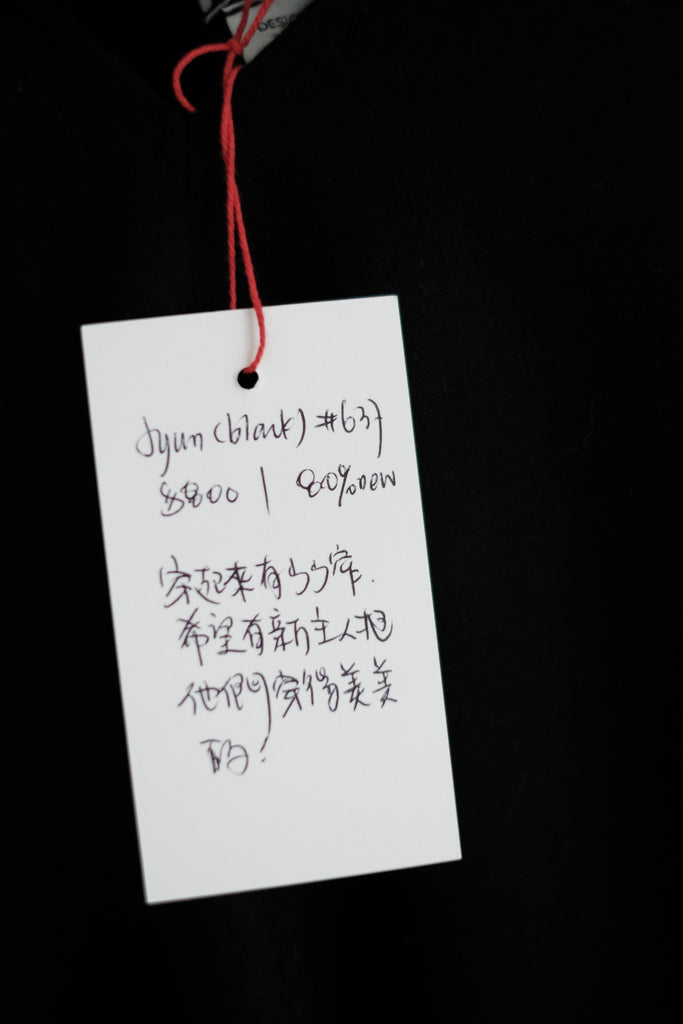 DESIG
Jyun (black) #637
$800 | 80% new
穿起來有ㄅㄅ窄.
希望有新主人把
他們穿得美美
的!